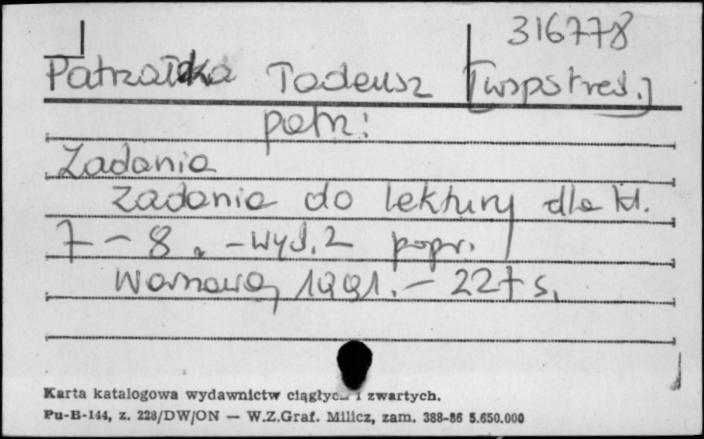 316778
Patrzałka Tadeusz [współred.]
patrz:
Zadania
Zadania do lektury dla kl.
7 - 8. - wyd. 2 popr.
Warszawa, 1991. - 227 s.
Karta katalogowa wydawnictw ciągłych i zwartych.
Pu-B-144, z. 228/DW/ON — W.Z.Graf. Milicz, zam. 388-86 5.650.000